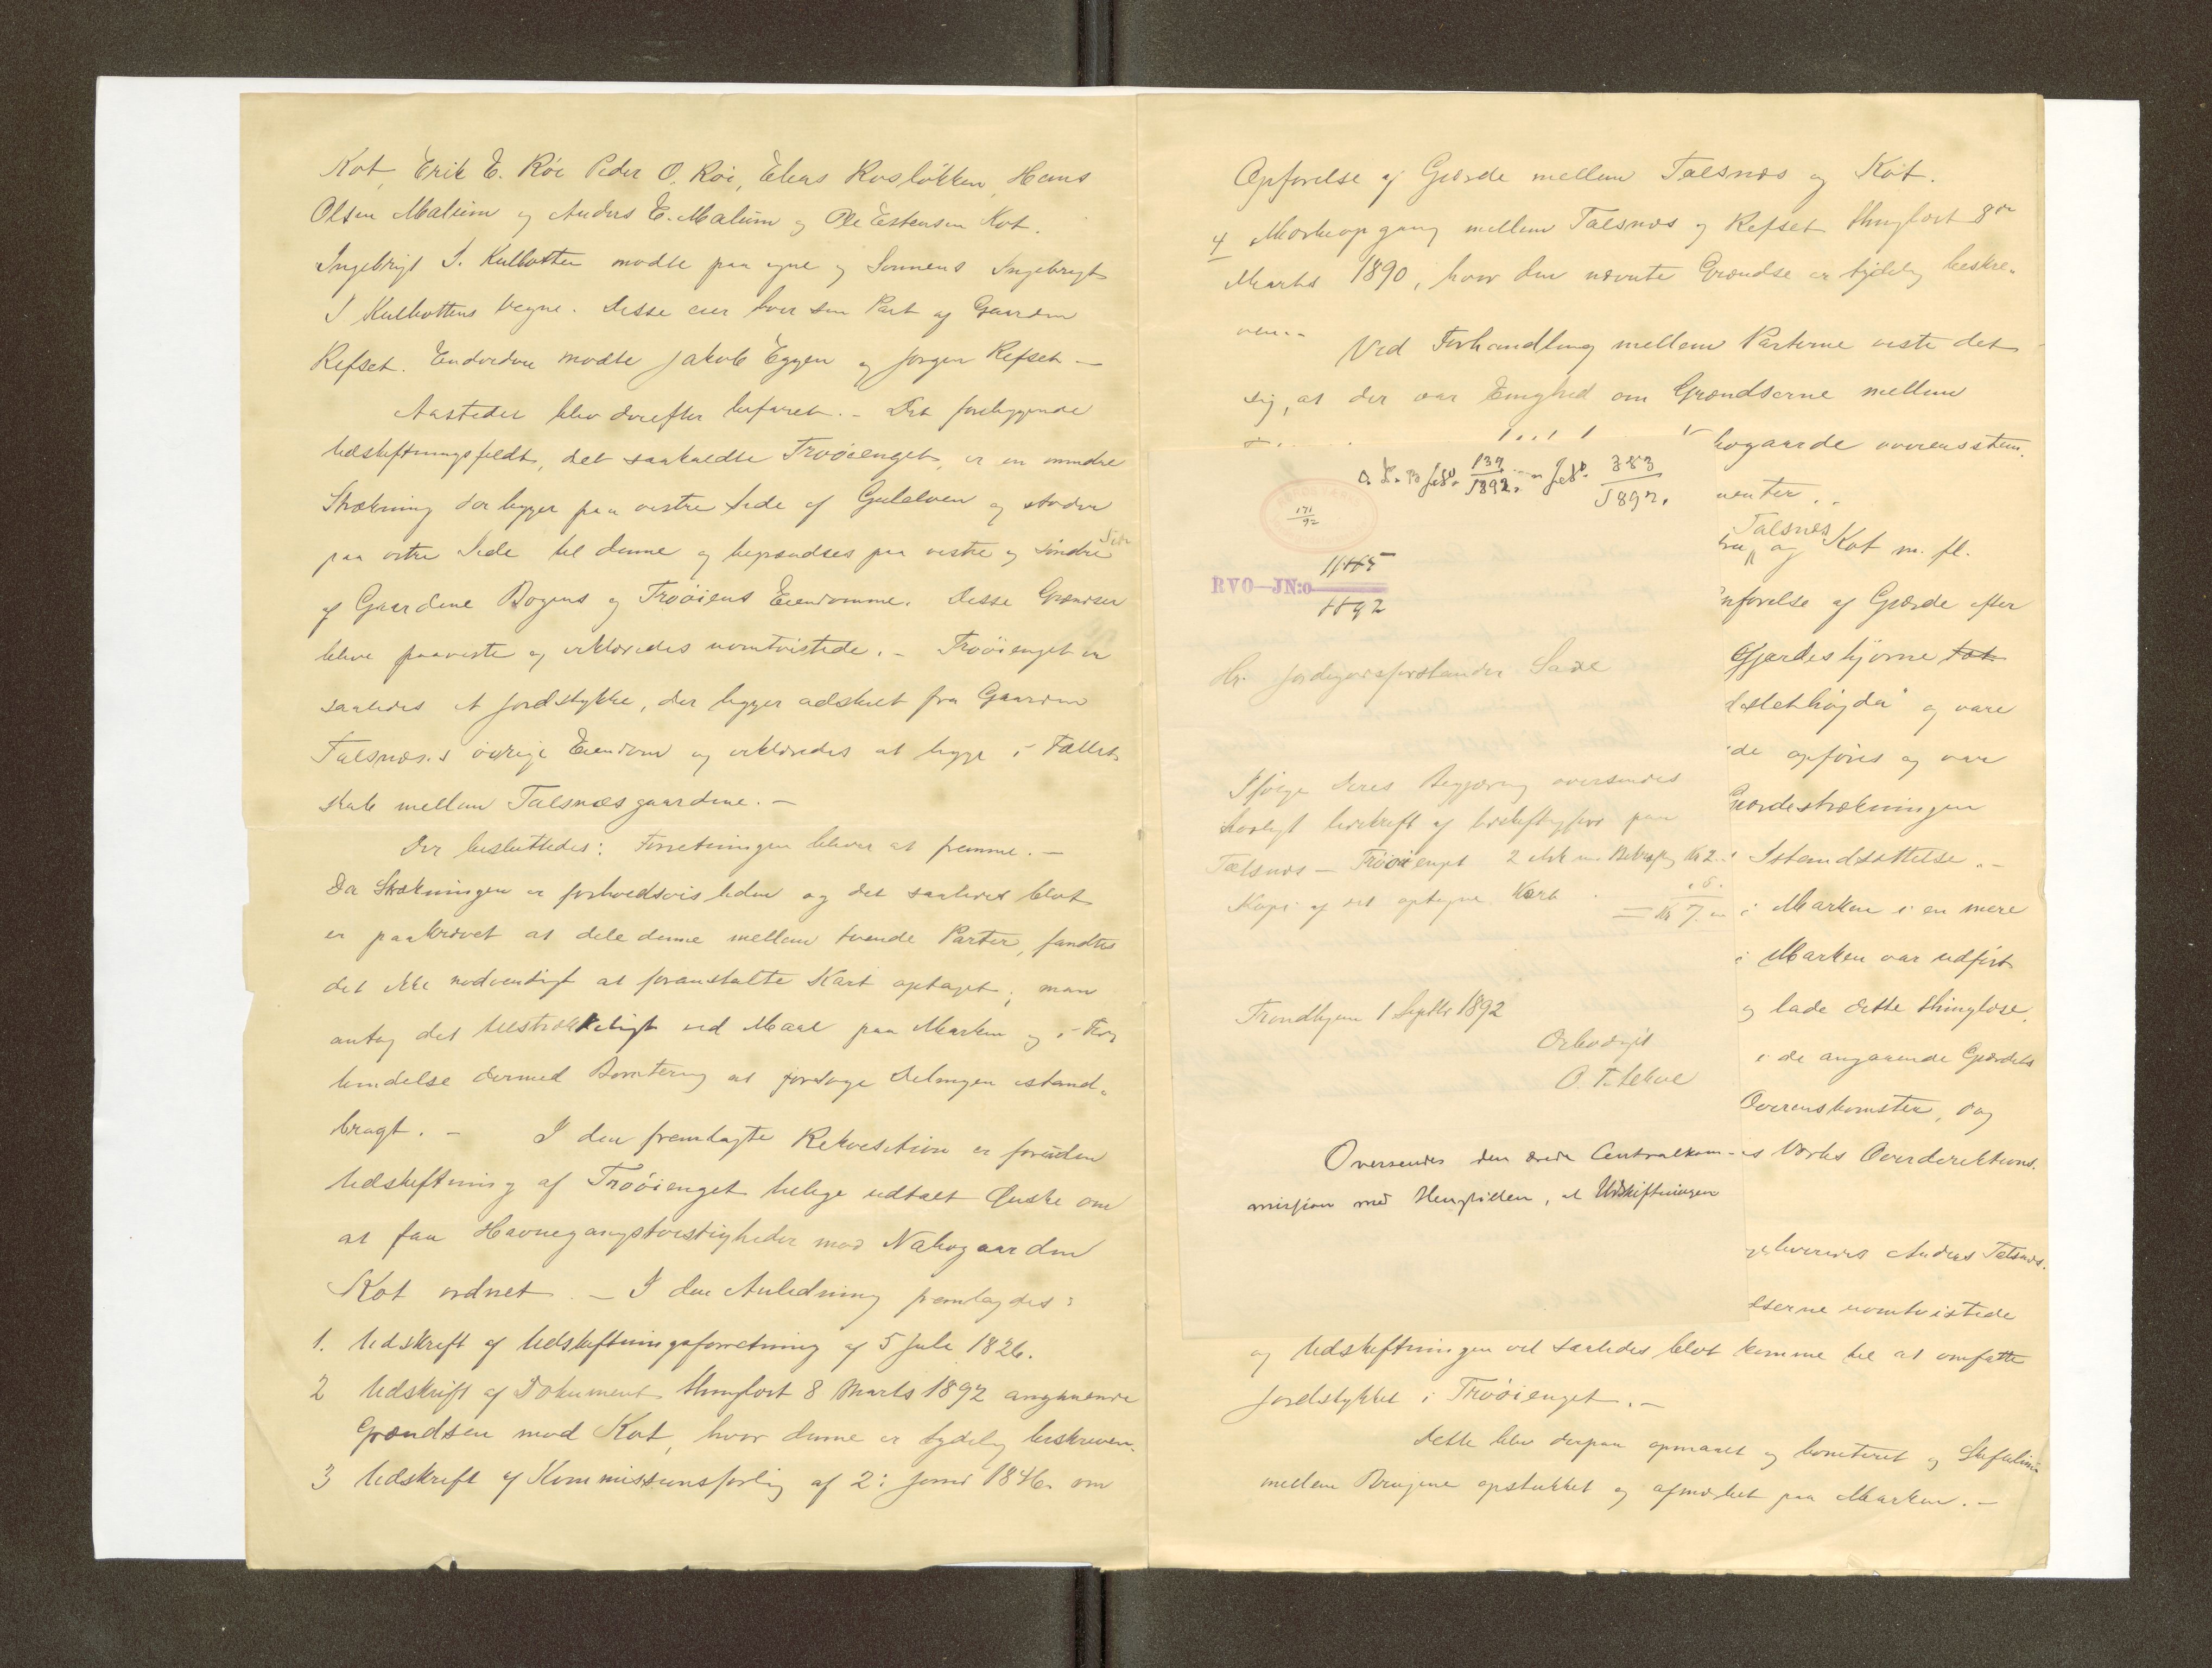 Kot, Erik E. Röe Peder O. Röe, Elias Kosløkken, Hans
Olsen Malum og Anders E. Malum og Ole Estensen Kot.
Ingebrigt I. Kulbotten mødte paa egne og Sønnens Ingebrigt
I Kulbottens Vegne. Disse eier hver sin Part af Gaarden
Refset. Endvidere mødte Jakob Eggen og Jørgen Refset —
Aastedet blev derefter befaret. – Det foreliggende
Udskiftningsfeldt, det saakaldte Trøöienget, er en mindre
Strækning der ligger paa vestre Side af Gulelven og støder
paa østre Side til denne og begrændses paa vestre og söndre Side
af Gaardene Bogens og Trøöiens Eiendomme. Disse Grændser
bleve paaviste og erklæredes uomtvistede. – Trøöienget er
saaledes et Jordstykke, der ligger adskilt fra Gaarden
Talsnæs.s övrige Eiendom og erklæredes at ligge i Fælles-
skab mellem Talsnæsgaardene. –
Der besluttedes: Forretningen bliver at fremme. –
Da Strækningen er forholdsvis liden og det saaledes blot
er paakrævet at dele denne mellem tvende Parter, fandtes
det ikke nødvendigt at foranstalte Kart optaget; man
antog det tilstrækkeligt ved Maal paa Marken og i For-
bindelse dermed Bonitering at foretage Delingen istand-
bragt. – I den fremlagte Rekvisition er foruden
Udskiftning af Trøöienget tillige udtalt Ønske om
at faa Havnegangstvistigheder mod Nabogaarden
Kot ordnet. – I den Anledning fremlagdes:
1. Udskrift af Udskiftningsforretning af 5 Juli 1826.
2 Udskrift af Dokument thinglæst 8 Marts 1892 angaaende
Grændsen mod Kot, hvor denne er tydelig beskreven.
3 Udskrift af Kommissionsforlig af 2: Juni 1846 om
Opførelse af Gjærde mellem Talsnæs og Kot.
4 Markeopgang mellem Talsnæs og Refset thinglæst 8de
Marts 1890, hvor den nævnte Grændse er tydelig beskre-
ven. –
Ved Forhandling mellem Parterne viste det
sig, at der var Enighed om Grændserne mellem
bogaarde overensstem.
menter. .
Talsnes
og Kot m. fl.
Opførelse af Gjærde efter
Gjærdeshjørne tat
sletthøgda" og vare
de opføres og var
Gjærdestrækningen
Istandsættelse. –
i Marken i en mere
i Marken var udført
og lade dette thinglæse.
i de angaaende Gjærdets
Overenskomster, dog
Værks Overdirektions.
Anders Talsnæs.
dserne uomtvistede
og Udskiftningen vil saaledes blot komme til at omfatte
Jordstykket i Trøöienget. –
Dette blev derpaa opmaalt og boniteret og Skifteliniⁿ
mellem Brugene opstukket og afmærket paa Marken. –
139
1892.
383
1892.
171
92
1145
RVO—JN:o
1892
Hr. Jordeiersforstander Saxe
Ifølge Deres Begjæring oversendes
herved Udskrift af Udskiftning paa
Talsnæs – Trøöienget 2 Ark Kr 2.
Kopi af det optagne Kart
= Kr 7.
Trondhjem 1 Septbr 1892
Ærbødigst
O. T. Lehne
Oversendes den ærede Centralkom-
mission med Henstillen, at Udskiftningen